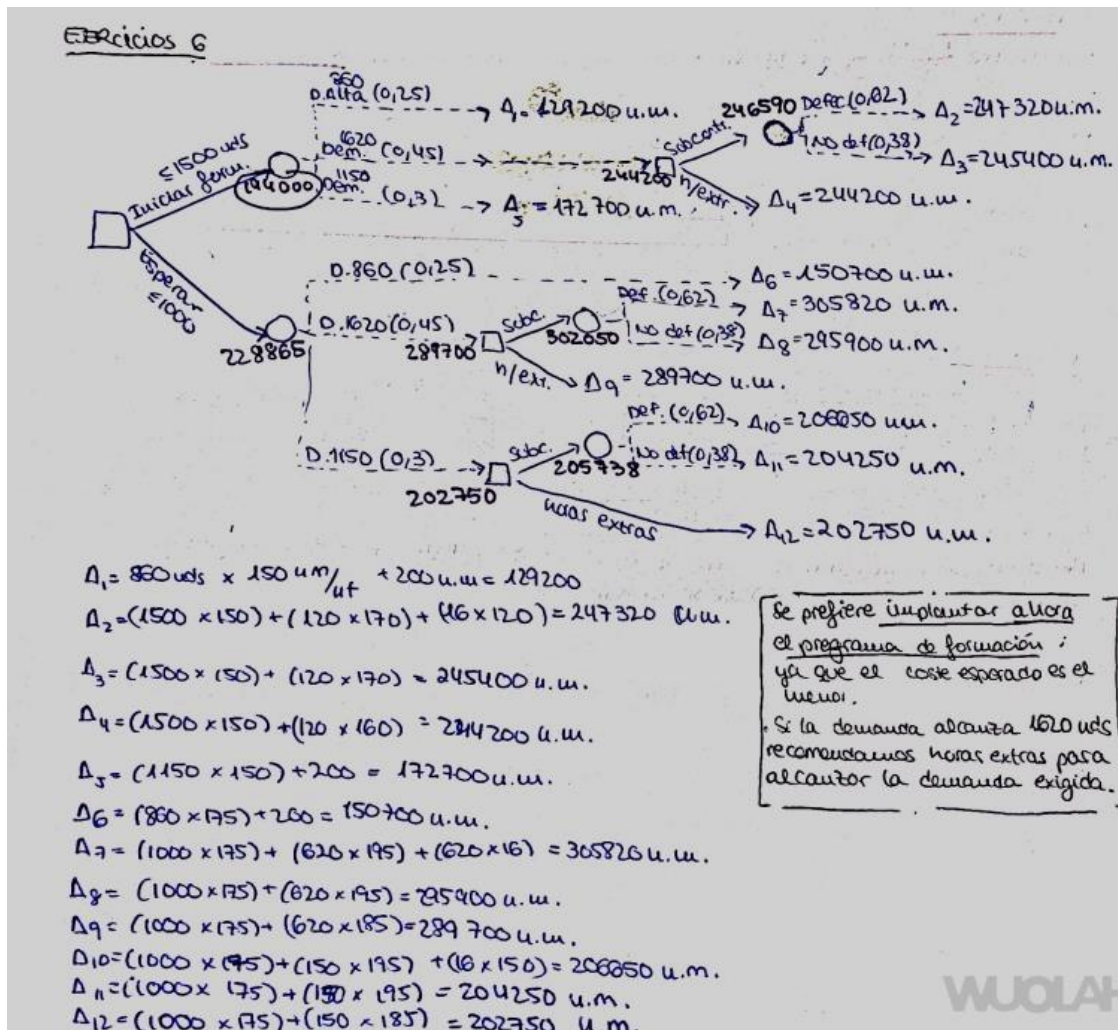 EJERcicios 6
860
D.Alta (0,25) → Δ1 = 129200 u.m.
1620
Dem. (0,45)
1150
Dem. (0,3) → Δ5 = 172700 u.m.
≤1500 uds
Iniciar form.
194000
244200
Subcontr.
246590
Defec (0,62) → Δ2 = 247320 u.m.
No def (0,38) → Δ3 = 245400 u.m.
h/extr. → Δ4 = 244200 u.m.
Esperar
≤1000
228865
D.860 (0,25) → Δ6 = 150700 u.m.
D.1620 (0,45)
289700
Subc.
302050
Def. (0,62) → Δ7 = 305820 u.m.
No def (0,38) → Δ8 = 295900 u.m.
h/extr. → Δ9 = 289700 u.m.
D.1150 (0,3)
202750
subc.
205738
Def. (0,62) → Δ10 = 206650 u.m.
No def (0,38) → Δ11 = 204250 u.m.
horas extras → Δ12 = 202750 u.m.
Δ1 = 860 uds × 150 um/ut + 200 u.m = 129200
Δ2 = (1500 × 150) + (120 × 170) + (16 × 120) = 247320 u.m.
Δ3 = (1500 × 150) + (120 × 170) = 245400 u.m.
Δ4 = (1500 × 150) + (120 × 160) = 244200 u.m.
Δ5 = (1150 × 150) + 200 = 172700 u.m.
Δ6 = (860 × 175) + 200 = 150700 u.m.
Δ7 = (1000 × 175) + (620 × 195) + (620 × 16) = 305820 u.m.
Δ8 = (1000 × 175) + (620 × 195) = 295900 u.m.
Δ9 = (1000 × 175) + (620 × 185) = 289700 u.m.
Δ10 = (1000 × 175) + (150 × 195) + (16 × 150) = 206650 u.m.
Δ11 = (1000 × 175) + (150 × 195) = 204250 u.m.
Δ12 = (1000 × 175) + (150 × 185) = 202750 u.m.
Se prefiere implantar ahora
el programa de formación;
ya que el coste esperado es el
menor.
. Si la demanda alcanza 1620 uds
recomendamos horas extras para
alcanzar la demanda exigida.
WUOLAH